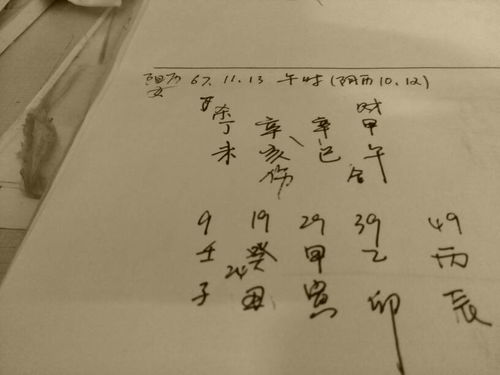 阳历 67.11.13 午时(阴历10.12)
女
杀 财
丁 辛 辛 甲
未 亥 巳 午
伤
9 19 29 39 49
壬 癸 甲 乙 丙
24
子 丑 寅 卯 辰